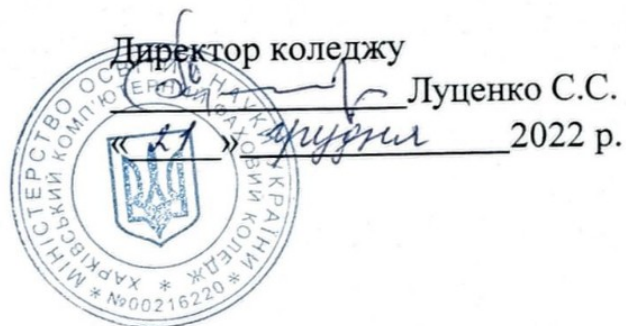 Директор коледжу
Луценко С.С.
«21» грудня 2022 р.
МІНІСТЕРСТВО ОСВІТИ І НАУКИ УКРАЇНИ
ХАРКІВСЬКИЙ КОМП'ЮТЕРНИЙ ФАХОВИЙ КОЛЕДЖ
* №00216220 *